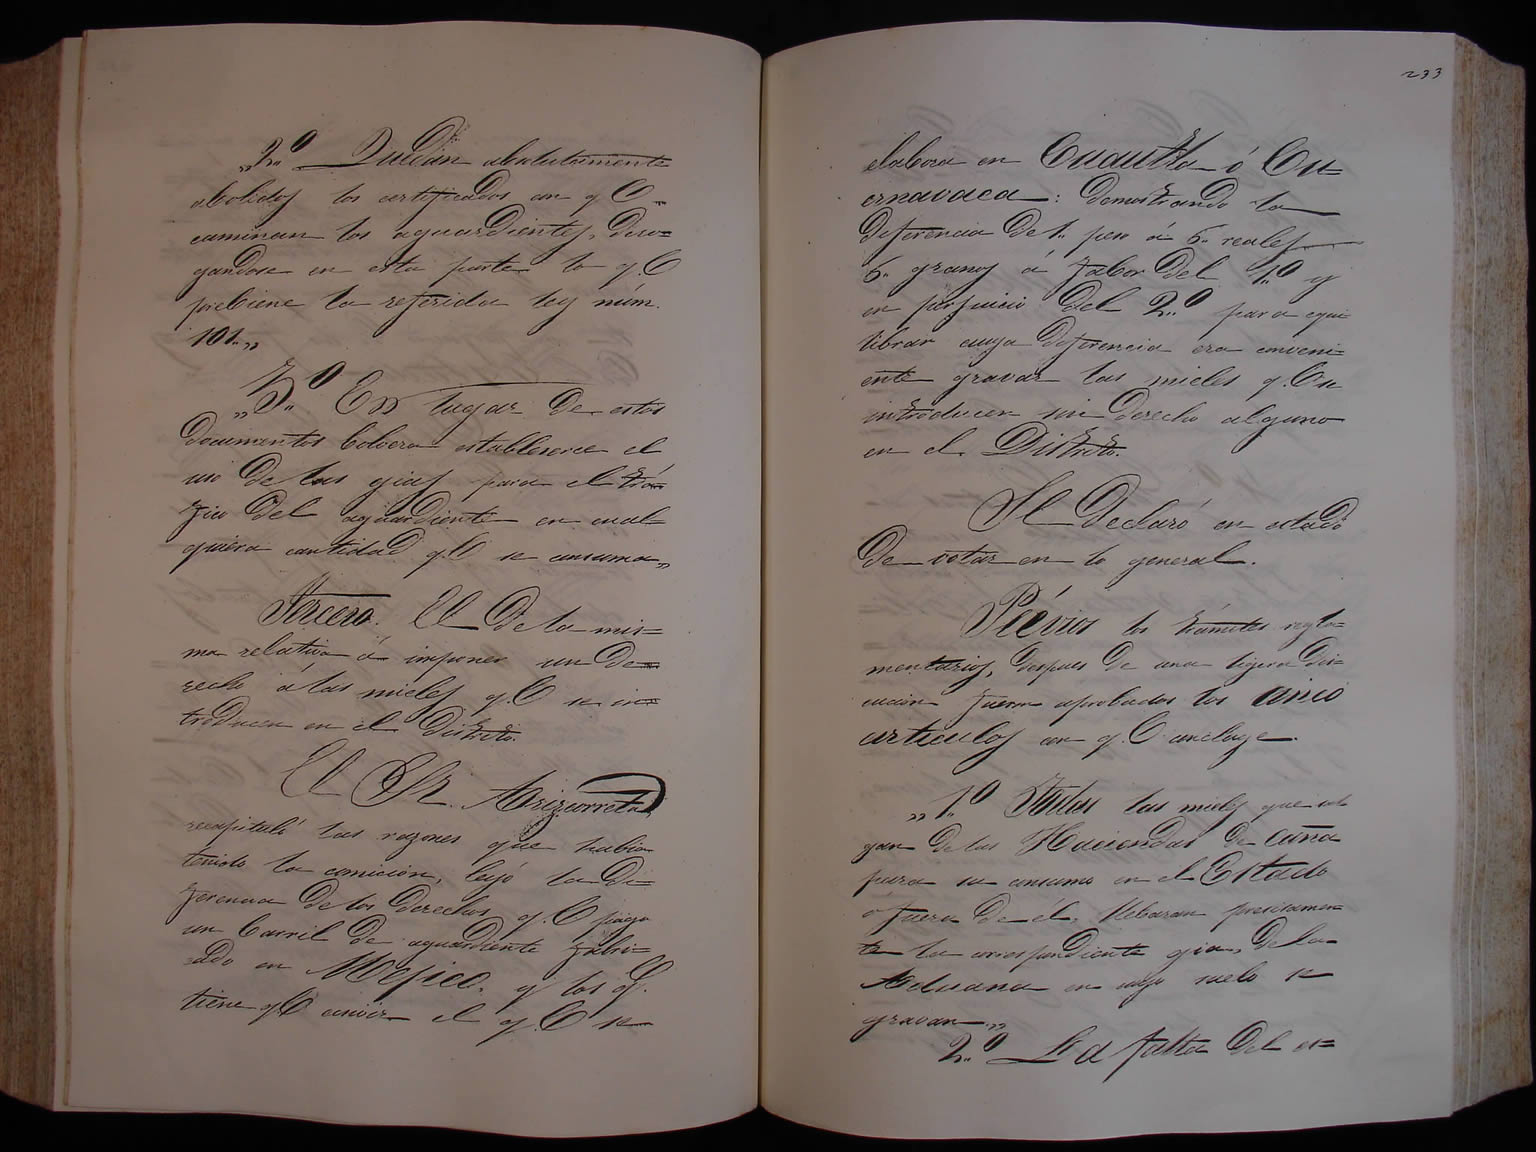 „2.º Quedan absolutamente
abolidos los certificados con q.e
caminan los aguardientes, dero=
gandose en esta parte lo q.e
prebiene la referida ley núm.
101.„
„3.º En lugar de estos
documentos bolvera establecerce el
uso de las gias para el trá=
fico del aguardiente en cual=
quiera cantidad q.e se consuma„
Tercero. El de la mis=
ma relativo á imponer un de=
recho á las mieles q.e se in=
troducen en el Distrito.
El Sr. Arizcorreta
recapituló las razones que habia
tenido la comicion, bajó la di=
ferencia de los derechos q.e paga
un barril de aguardiente fabri=
cado en Mejico, y los q.
tiene q.e cubrir el q.e se
233
elabora en Cuautla ó Cu=
ernavaca: demostrando la
diferencia de 1. peso á 6. reales
6. granos á fabor del 1.º y
en perjuicio del 2.º para equi=
librar cuya diferencia era conveni=
ente gravar las mieles q.e se
introducen sin derecho alguno
en el Distrito.
Se declaró en estado
de votar en lo general.
Prévios los trámites regla=
mentarios, despues de una ligera dis=
cucion fueron aprobados los cinco
articulos con q.e concluye.
„1.º Todas las mieles que sal
gan de las Haciendas de caña
para su consumo en el Estado
ó fuera de él, llebaran precisamen=
te la correspondiente gia, de la
Aduana en cuyo suelo se
gravan„
2.º La falta del es=